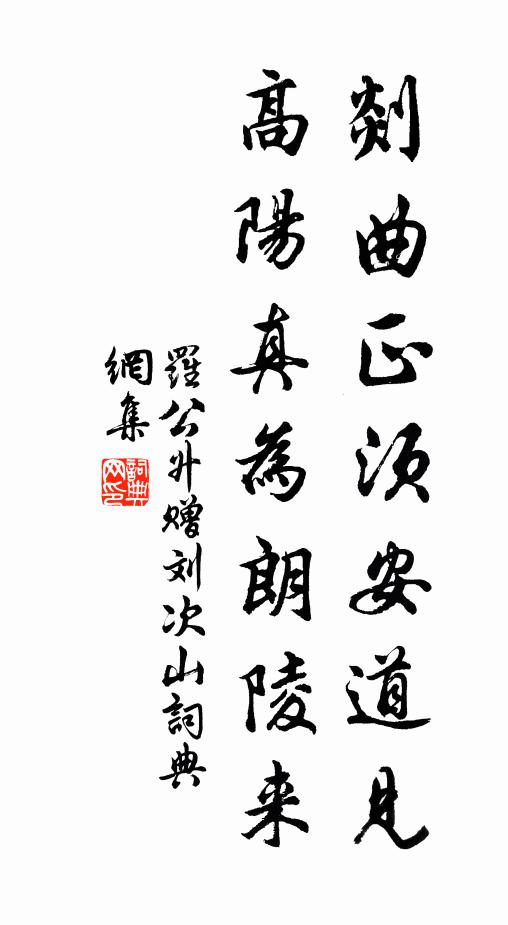 剡曲正须安道見
高陽真為朗陵来
羅公升贈刘次山詞典
網集
詞典网印